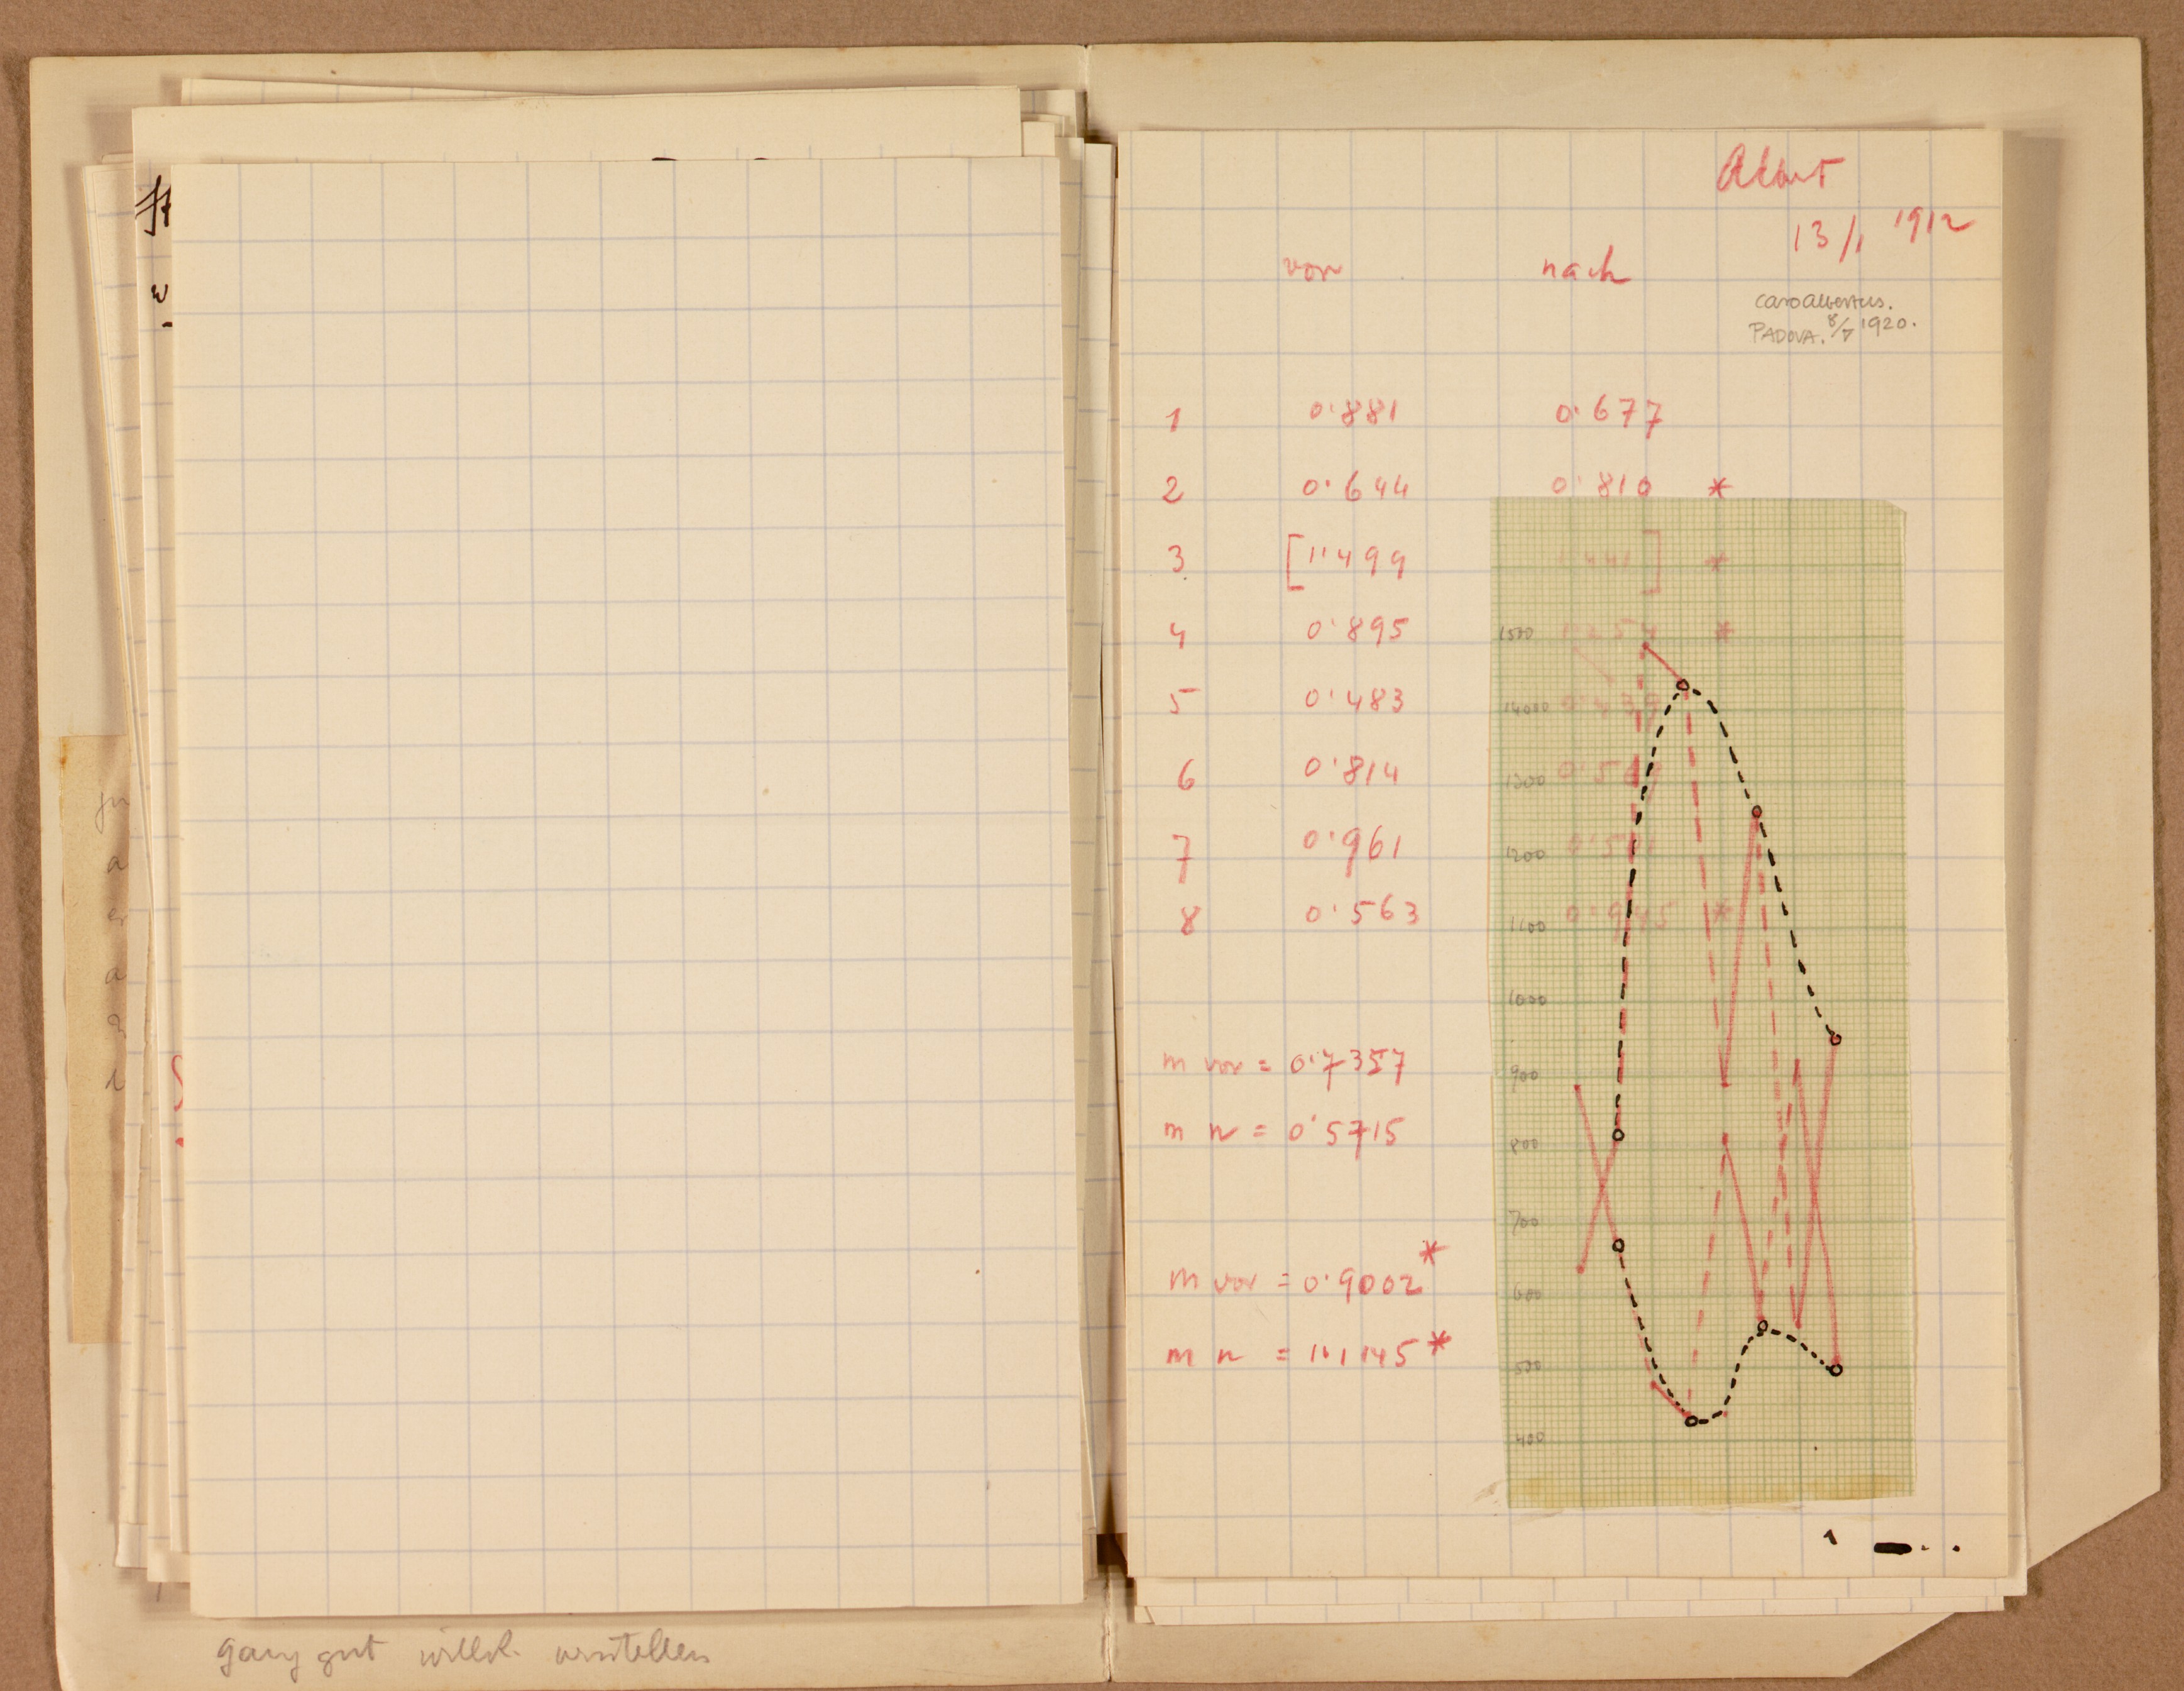 13/1 1912
vor nach
PADOVA. 8/7 1920.
1 0·881 0·677
2 0·644 0·810 *
3 [1·499 ] *
4 0·895 *
1500
5 0·483
14000
6 0·814
1300
7 0·961
1200
8 0·563 0·945 *
1100
1000
m vor = 0·7357
900
m n = 0·5715
800
700
m vor = 0·9002*
600
m n = 1·1145*
500
400
1
ganz gut willk.